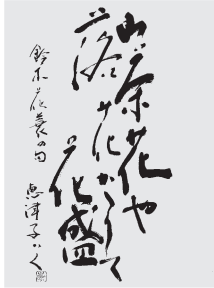 山茶花や
落花かゝりて
花盛
鈴木花蓑の句
恵津子かく